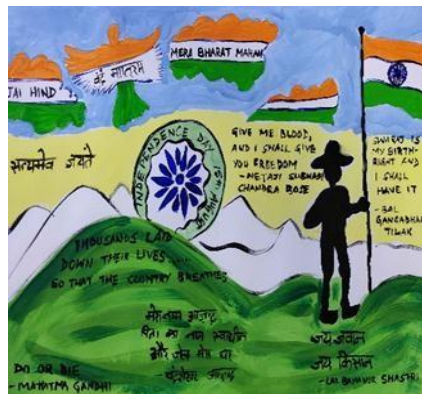 JAI HIND
वंदे मातरम्
MERA BHARAT MAHAN
सत्यमेव जयते
INDEPENDENCE DAY 15th AUGUST
GIVE ME BLOOD,
AND I SHALL GIVE
YOU FREEDOM
- NETAJI SUBHASH
CHANDRA BOSE
SWARAJ IS
MY BIRTH-
RIGHT AND
I SHALL
HAVE IT
- BAL
GANGADHAR
TILAK
THOUSANDS LAID
DOWN THEIR LIVES.....
SO THAT THE COUNTRY BREATHES
मेरा नाम आजाद
पिता का नाम स्वाधीन
और जेल मेरा घर
- चंद्रशेखर आजाद
जय जवान
जय किसान
- LAL BAHADUR SHASTRI
DO OR DIE
- MAHATMA GANDHI